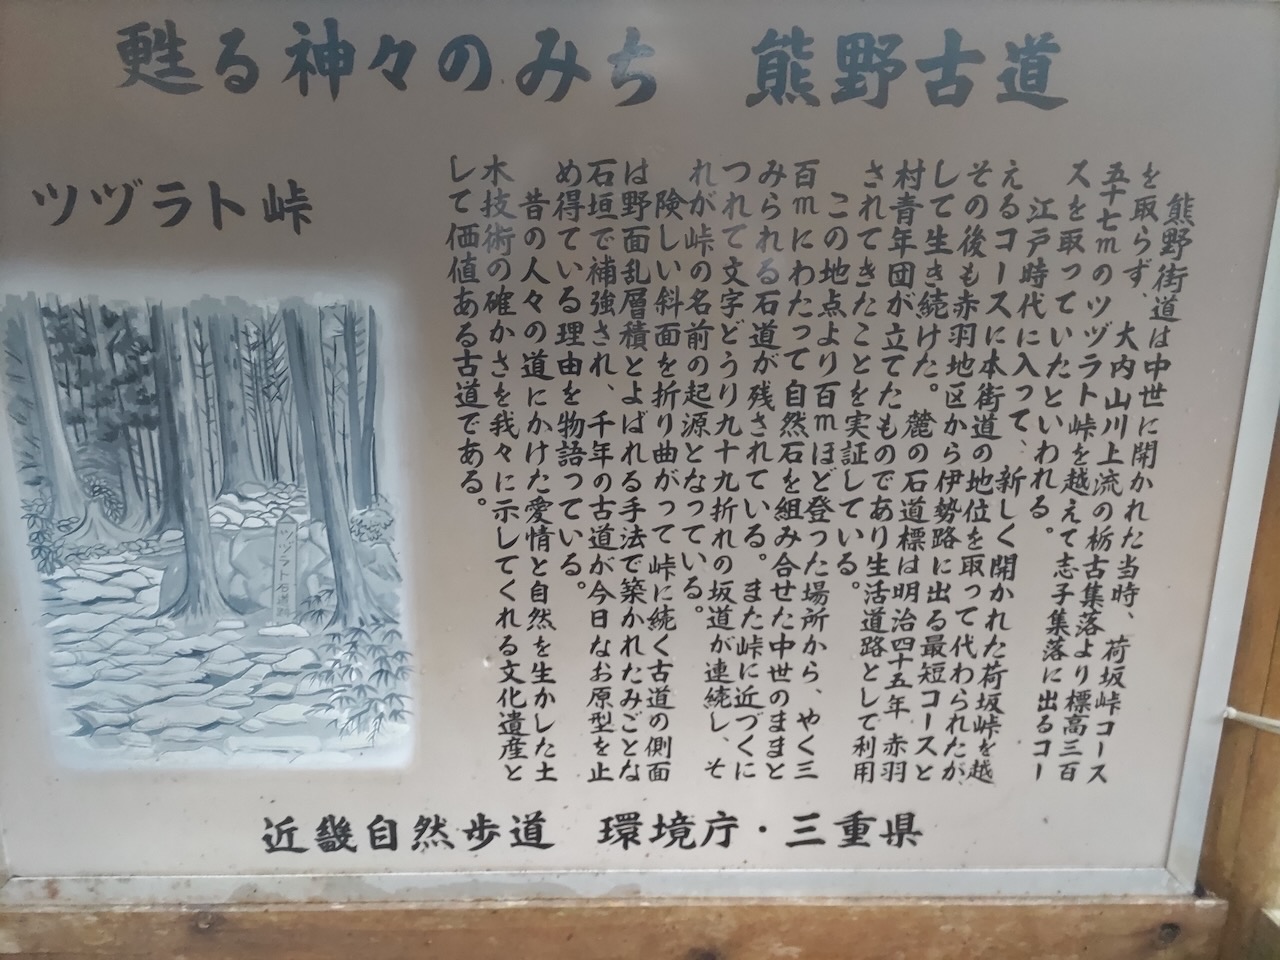 甦る神々のみち　熊野古道
ツヅラト峠
熊野街道は中世に開かれた当時、荷坂峠コース
を取らず、大内山川上流の栃古集落より標高三百
五十七mのツヅラト峠を越えて志子集落に出るコー
スを取っていたといわれる。
江戸時代に入って、新しく開かれた荷坂峠を越
えるコースに本街道の地位を取って代わられたが
その後も赤羽地区から伊勢路に出る最短コースと
して生き続けた。麓の石道標は明治四十五年赤羽
村青年団が立てたものであり生活道路として利用
されてきたことを実証している。
この地点より百mほど登った場所から、やく三
百mにわたって自然石を組み合せた中世のままと
みられる石道が残されている。また峠に近づくに
つれて文字どうり九十九折れの坂道が連続し、そ
れが峠の名前の起源となっている。
険しい斜面を折り曲がって峠に続く古道の側面
は野面乱層積とよばれる手法で築かれたみごとな
石垣で補強され、千年の古道が今日なお原型を止
め得ている理由を物語っている。
昔の人々の道にかけた愛情と自然を生かした土
木技術の確かさを我々に示してくれる文化遺産と
して価値ある古道である。
ツヅラト
近畿自然歩道　環境庁・三重県